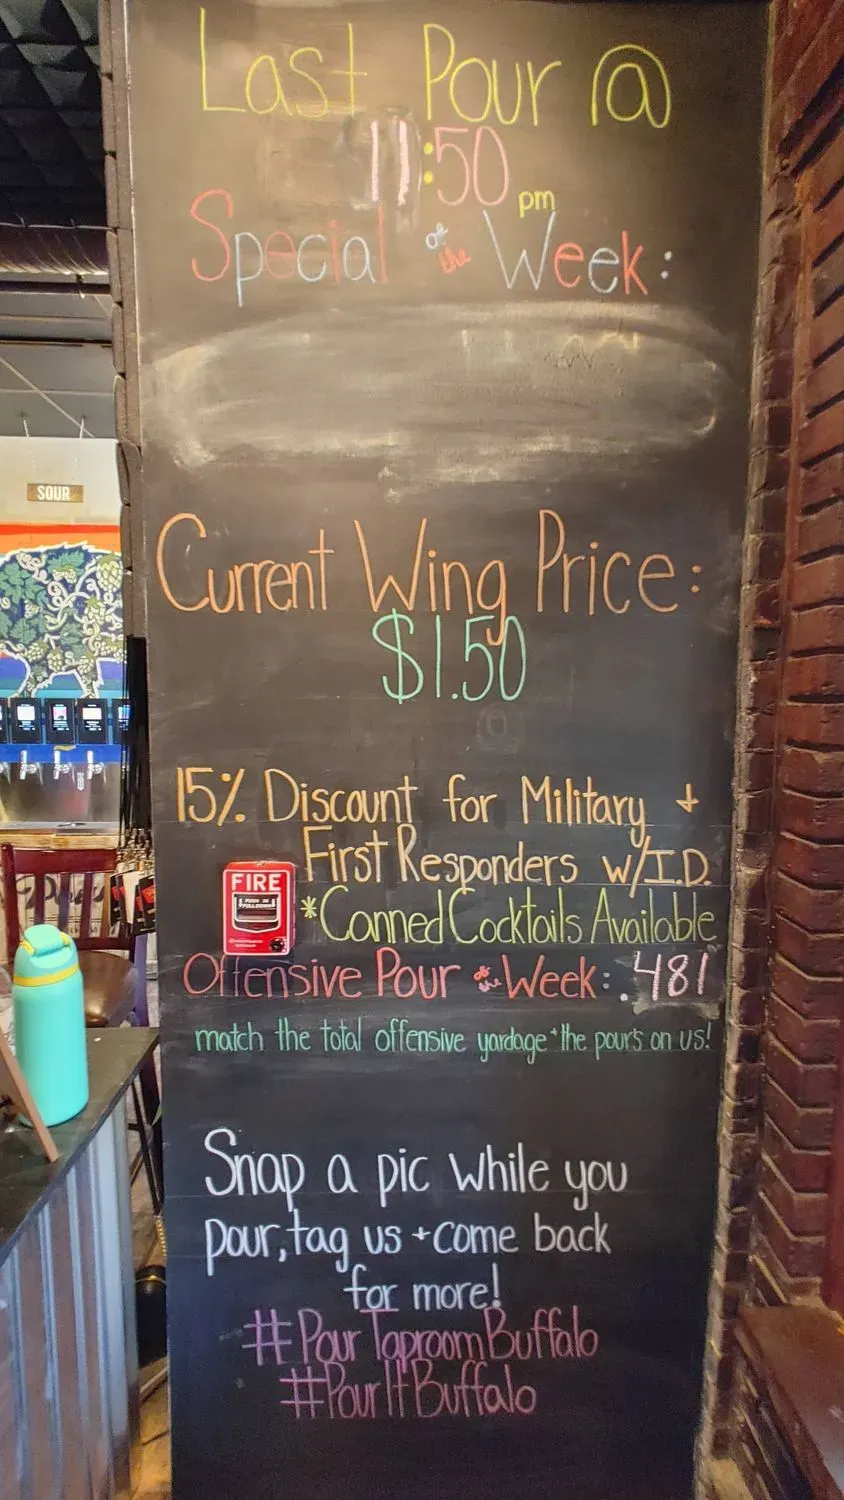 Last Pour @
11:50 pm
Special of the Week:
SOUR
Current Wing Price:
$1.50
15% Discount for Military +
First Responders w/I.D.
FIRE
*Canned Cocktails Available
Offensive Pour of the Week: .481
match the total offensive yardage + the pour's on us!
Snap a pic while you
pour, tag us + come back
for more!
#PourTaproomBuffalo
#PourItBuffalo